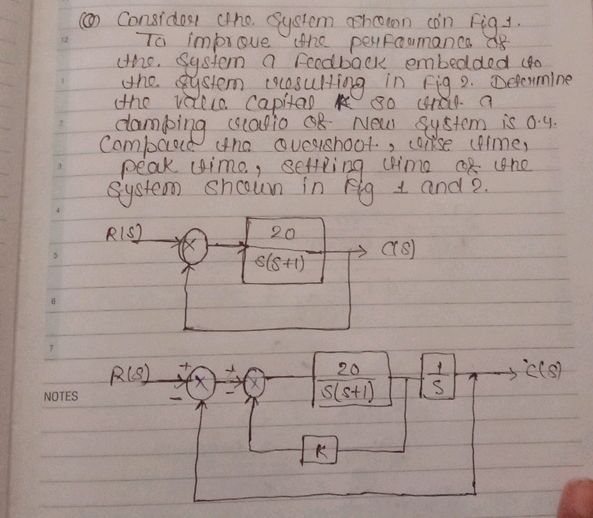 Q Consider the system shown in Fig 1.
To improve the performance of
the. system a feedback embedded to
the system resulting in Fig 2. Determine
the value capital K so that a
damping ratio of New system is 0.4.
Compared the overshoot, rise time,
peak time, settling time of the
system shown in Fig 1 and 2.
R(S)
×
20
S(S+1)
C(S)
R(S)
+
×
-
+
×
-
20
S(S+1)
1
S
C(S)
K
NOTES
12
1
2
3
4
5
6
7